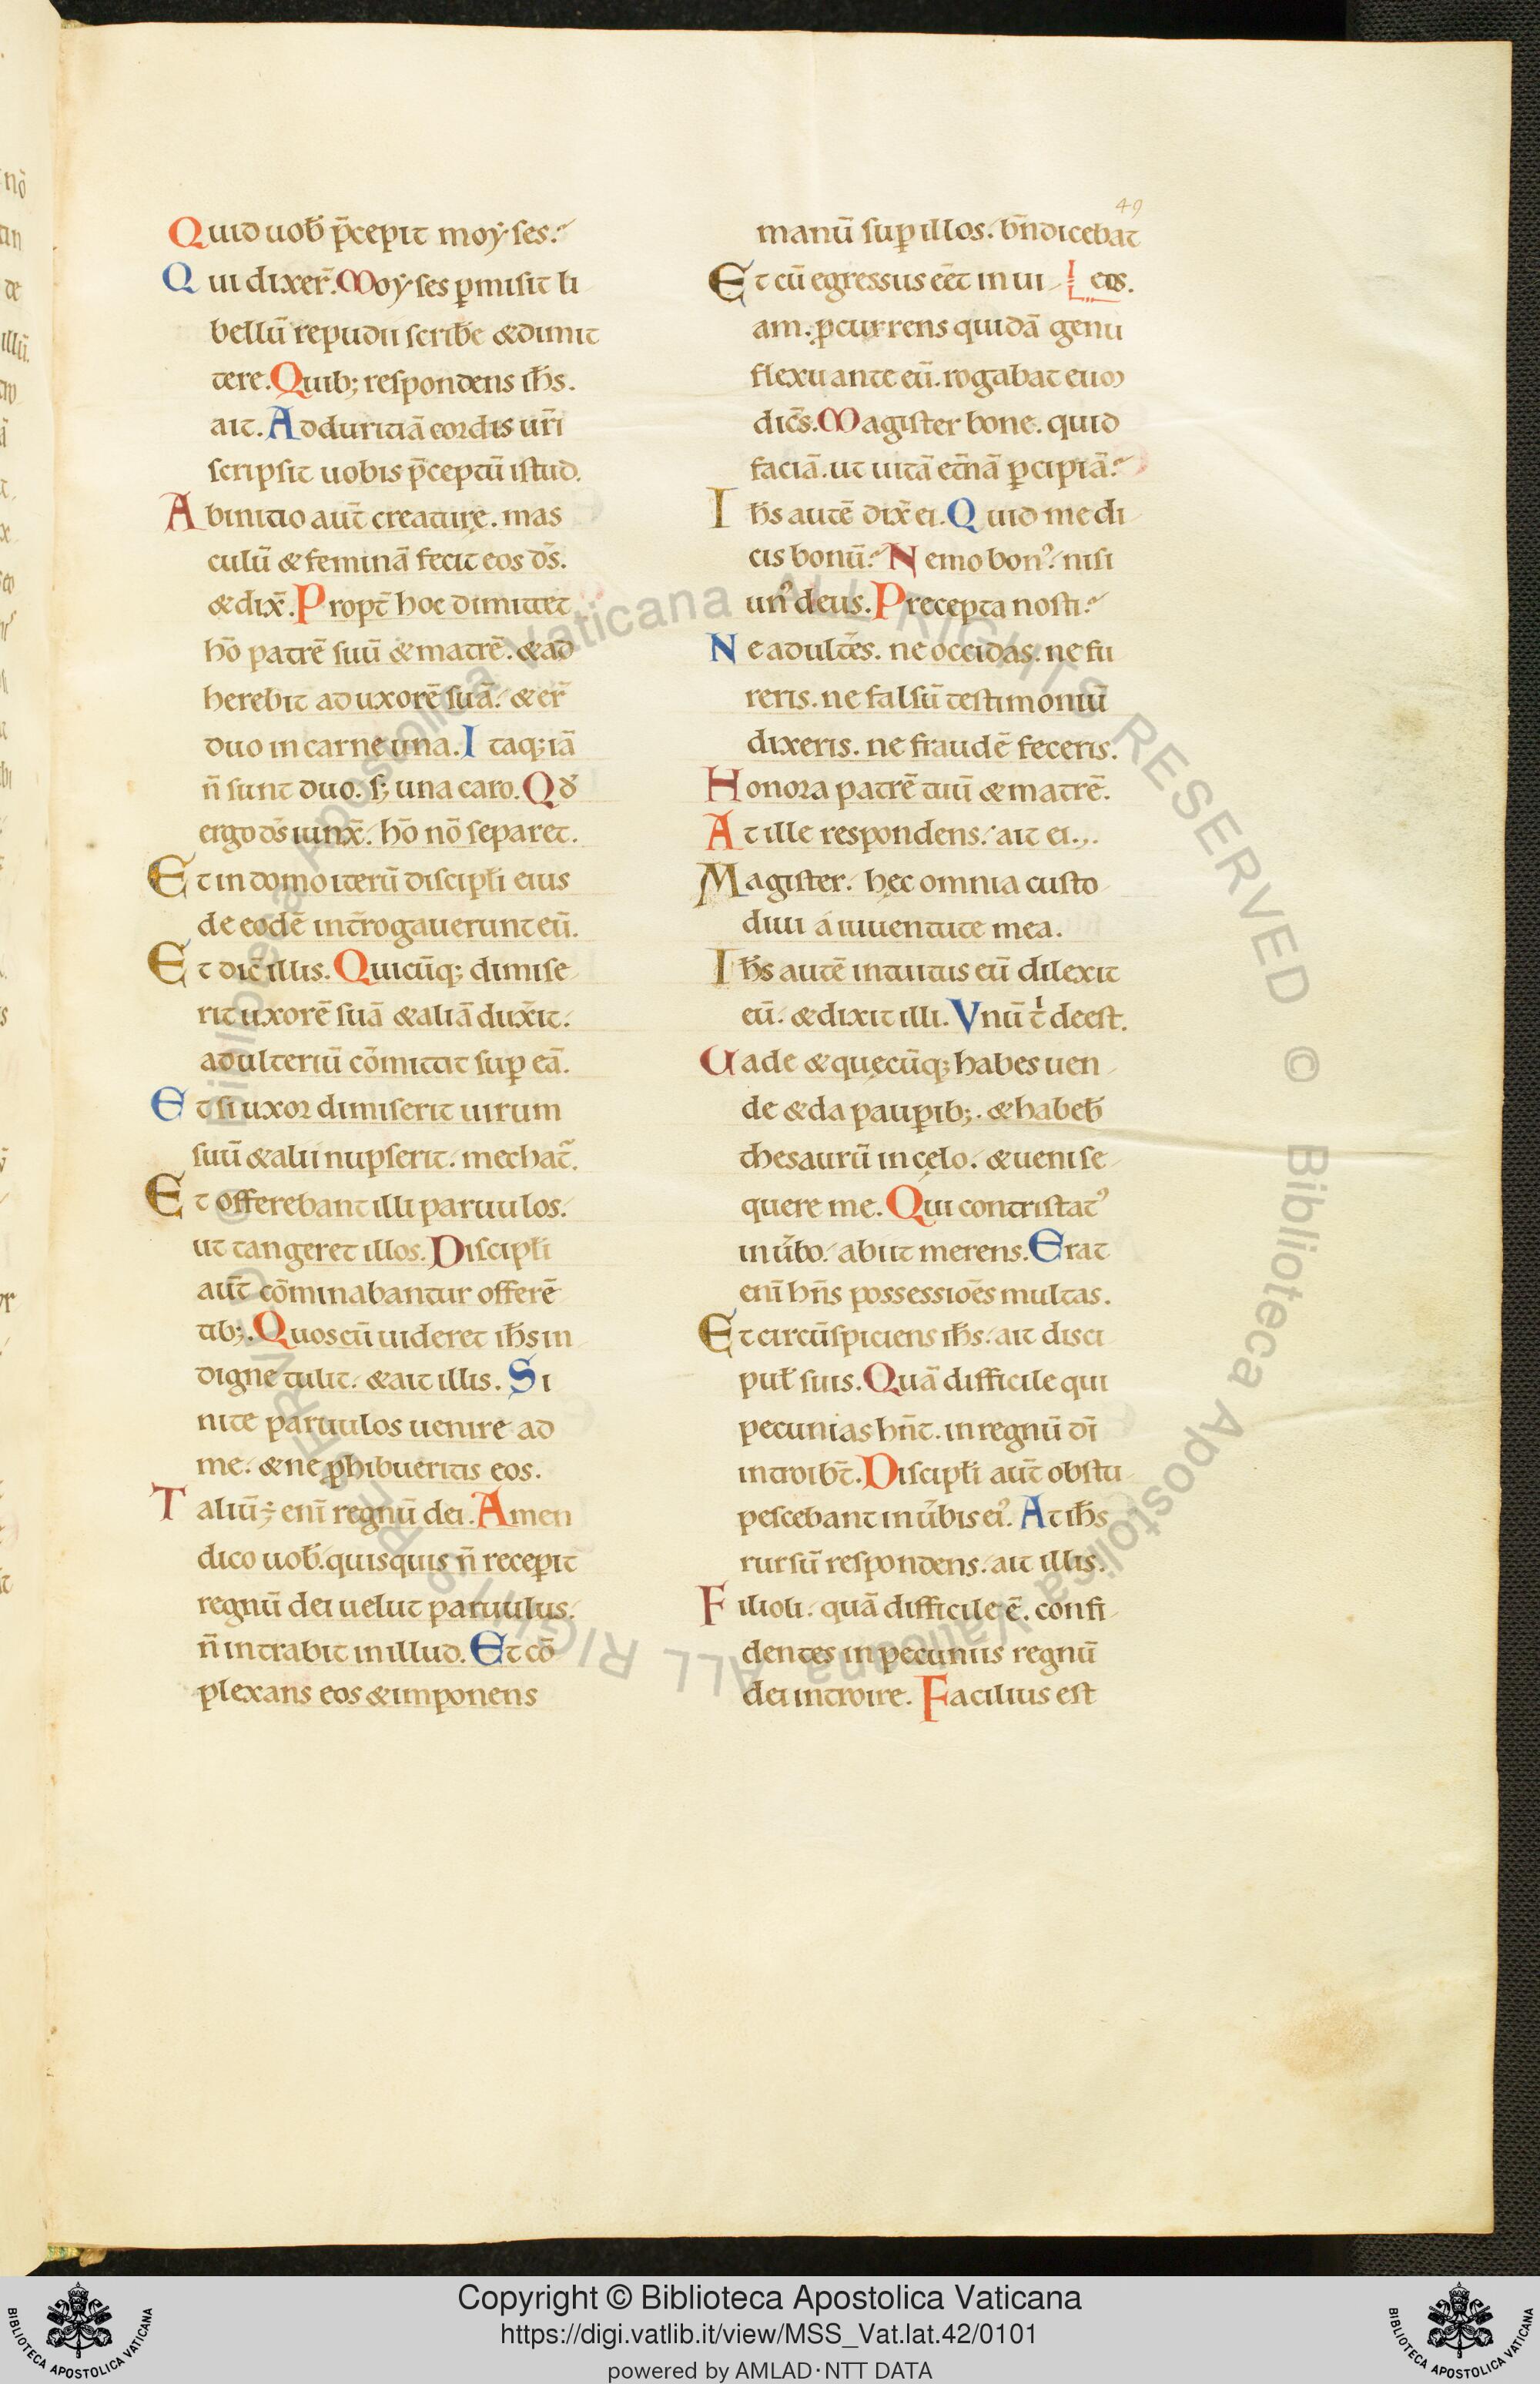 49
Quid uob̄ p̄cepit moẏses.
Qui dixer̄. Moẏses ꝑmisit li
bellū repudii scribe &dimit
tere. Quib; respondens ih̄s.
ait. Ad duritiā cordis ur̄i
scripsit uobis p̄ceptū istud.
Ab initio aut̄ creature. mas
culū & feminā fecit eos d̄s.
& dix̄. Propt̄ hoc dimittet
hō patrē suū & matrē. & ad
herebit ad uxorē suā. & er̄
duo in carne una. Itaq; iā
n̄ sunt duo. s; una caro. Qđ
ergo d̄s iunx̄. hō nō separet.
Et in domo iterū discipłi eius
de eodē int̄rogauerunt eū.
Et dic̄ illis. Quicūq; dimise
rit uxorē suā & aliā dux̄it.
adulteriū cōmittit suꝑ eā.
Et si uxor dimiserit uirum
suū & alii nupserit. mechat̄.
Et offerebant illi paruulos.
ut tangeret illos. Discipłi
aut̄ cōminabantur offerē
tib;. Quos cū uideret ih̄s in
digne tulit. & ait illis. Si
nite paruulos uenire ad
me. & ne ꝓhibueritis eos.
Taliū ÷ enī regnū dei. Amen
dico uob̄. quisquis n̄ receꝑit
regnū dei uelut paruulus.
n̄ intrabit in illud. Et cō
plexans eos & imponens
manū suꝑ illos. bn̄dicebat
Et cū egressus eēt in ui eos.
am. ꝓcurrens quidā genu
flexu ante eū. rogabat eum
dicēs. Magister bone. quid
faciā. ut uitā et̄nā ꝑcipiā.
Ih̄s autē dix̄ ei. Quid me di
cis bonū. Nemo bonꝰ. nisi
unꝰ deus. Precepta nosti.
Ne adult̄es. ne occidas. ne fu
reris. ne falsū testimoniū
dixeris. ne fraudē feceris.
Honora patrē tuū & matrē.
At ille respondens. ait ei.
Magister. hęc omnia custo
diui á iuuentute mea.
Ih̄s autē intuitus eū dilexit
eū. & dixit illi. Vnū t̄ deest.
Uade & quęcūq; habes uen
de & da pauꝑib;. & habeb̄
thesaurū in cęlo. & ueni se
quere me. Qui contristatꝰ
in ūbo. abiit merens. Erat
enī hn̄s possessiōes multas.
Et circūspiciens ih̄s. ait disci
puł suis. Quā difficile qui
pecunias hn̄t. in regnū dī
introib̄t. Discipłi aut̄ obstu
pescebant in ūbis eiꝰ. At ih̄s
rursū respondens. ait illis.
Filioli. quā difficile ē. confi
dentes in pecuniis regnū
dei introire. Facilius est
Copyright © Biblioteca Apostolica Vaticana
https://digi.vatlib.it/view/MSS_Vat.lat.42/0101
powered by AMLAD·NTT DATA